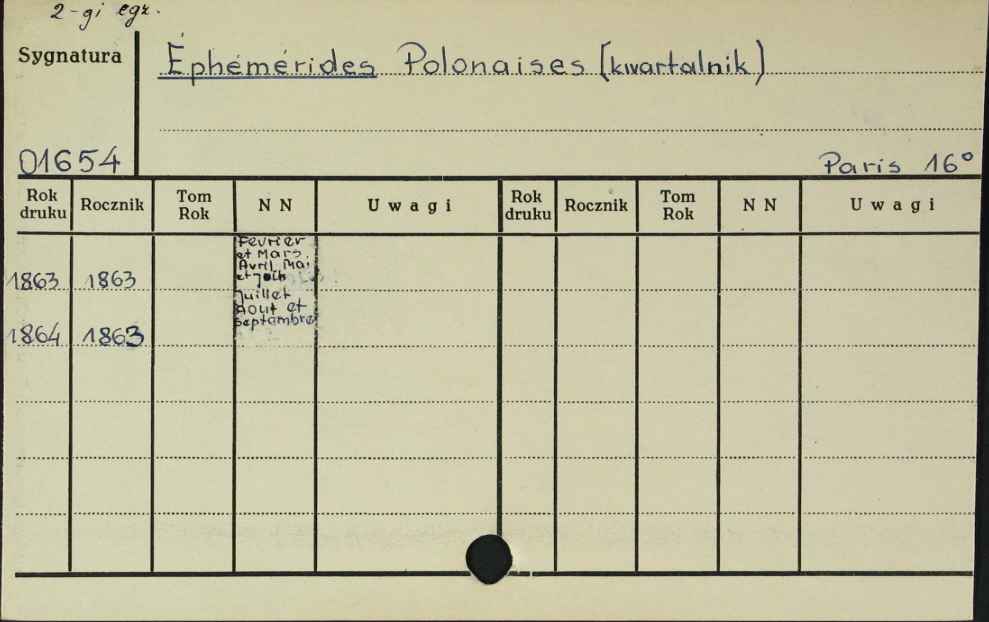 2-gi egz.
Sygnatura
Éphémérides Polonaises (kwartalnik)
01654
Paris 16°
Rok druku Rocznik Tom Rok N N Uwagi Rok druku Rocznik Tom Rok N N Uwagi
Fevrier
et Mars,
Avril, Mai
1863 1863 et
Juillet
Aout et
Septembre
1864 1863